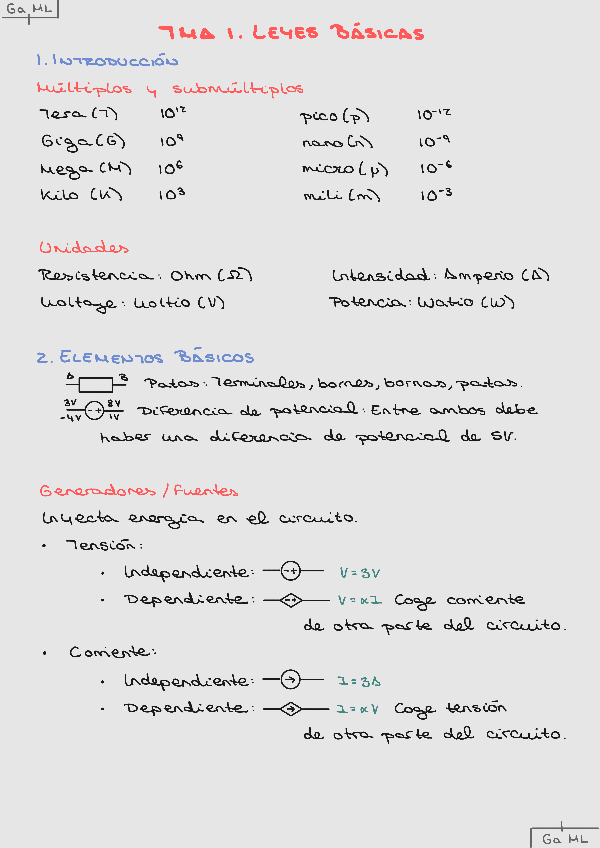 Ga ML
TMA 1. LEYES BÁSICAS
1. INTRODUCCIÓN
Múltiplos y submúltiplos
Tera (T) 10¹² pico (p) 10⁻¹²
Giga (G) 10⁹ nano (n) 10⁻⁹
Mega (M) 10⁶ micro (µ) 10⁻⁶
Kilo (K) 10³ mili (m) 10⁻³
Unidades
Resistencia: Ohm (Ω) Intensidad: Amperio (A)
Voltaje: Voltio (V) Potencia: Watio (W)
2. ELEMENTOS BÁSICOS
A B Patas: Terminales, bornes, bornas, patas.
3V 8V Diferencia de potencial: Entre ambos debe
-4V - + 1V
haber una diferencia de potencial de 5V.
Generadores / Fuentes
Inyecta energía en el circuito.
• Tensión:
• Independiente: - + V = 3V
• Dependiente: - + V = αI Coge corriente
de otra parte del circuito.
• Corriente:
• Independiente: → I = 3A
• Dependiente: → I = αV Coge tensión
de otra parte del circuito.
Ga ML